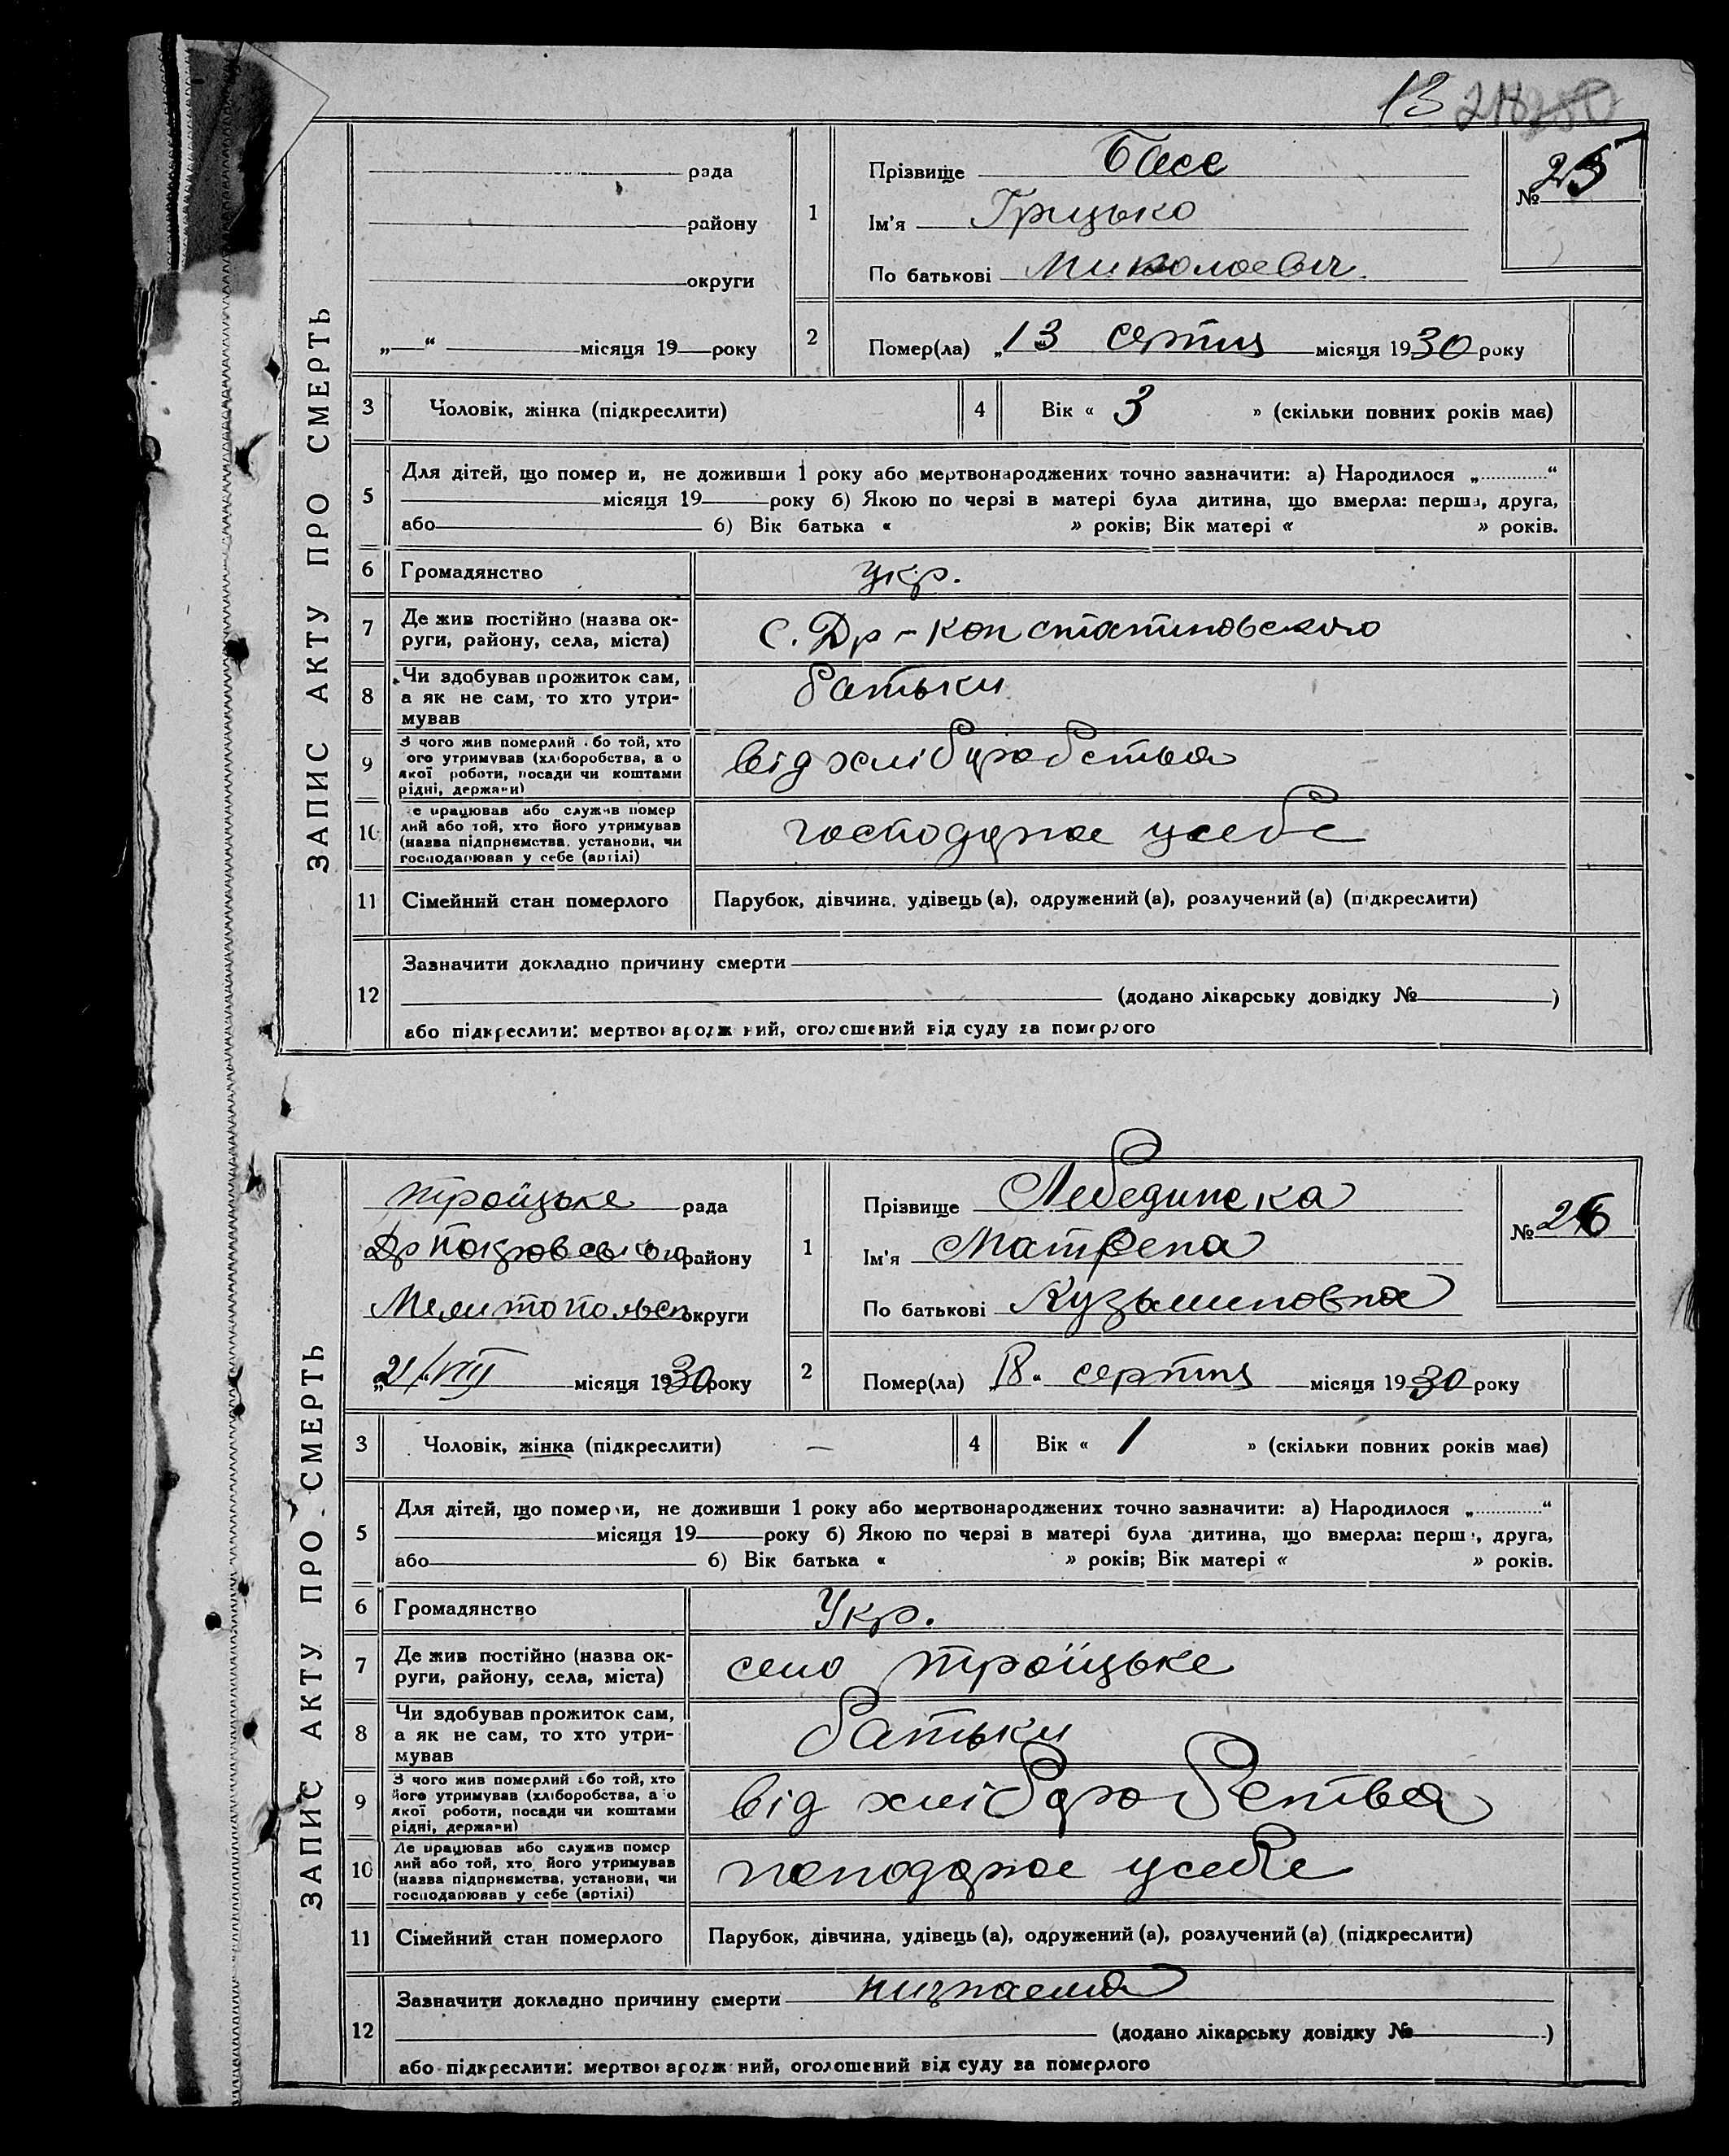 13
ЗАПИС АКТУ ПРО СМЕРТЬ
рада
району
округи
„ “ місяця 19 року
1
Прізвище Басс
Ім'я Грицько
По батькові Миколоевич.
№ 25
2
Помер(ла) „13 серпня місяця 1930 року
3
Чоловік, жінка (підкреслити)
4
Вік « 3 » (скільки повних років має)
5
Для дітей, що помер и, не доживши 1 року або мертвонароджених точно зазначити: а) Народилося „ “
місяця 19 року б) Якою по черзі в матері була дитина, що вмерла: перша, друга,
або б) Вік батька « » років; Вік матері « » років.
6
Громадянство
Укр.
7
Де жив постійно (назва ок-
руги, району, села, міста)
с. Др-Констатиновського
8
Чи здобував прожиток сам,
а як не сам, то хто утри-
мував
батьки
9
З чого жив померлий або той, хто
ого утримував (хліборобства, а о
якої роботи, посади чи коштами
рідні, держави)
від хліборобства
10
е працював або служив помер
лий або той, хто його утримував
(назва підприємства, установи, чи
господарював у себе (артілі)
господарює усебе
11
Сімейний стан померлого
Парубок, дівчина, удівець (а), одружений (а), розлучений (а) (підкреслити)
12
Зазначити докладно причину смерти
(додано лікарську довідку № )
або підкреслити: мертвонароджений, оголошений від суду за померлого
ЗАПИС АКТУ ПРО СМЕРТЬ
Троїцьке рада
Др Покровського району
Мелитопольск округи
„21/VIII місяця 1930 року
1
Прізвище Лебединска
Ім'я Матрена
По батькові Кузьминовна
№ 26
2
Помер(ла) „18“ серпня місяця 1930 року
3
Чоловік, жінка (підкреслити) —
4
Вік « 1 » (скільки повних років має)
5
Для дітей, що померли, не доживши 1 року або мертвонароджених точно зазначити: а) Народилося „ “
місяця 19 року б) Якою по черзі в матері була дитина, що вмерла: перш , друга,
або б) Вік батька « » років; Вік матері « » років.
6
Громадянство
Укр.
7
Де жив постійно (назва ок-
руги, району, села, міста)
село Троїцьке
8
Чи здобував прожиток сам,
а як не сам, то хто утри-
мував
батьки
9
З чого жив померлий або той, хто
його утримував (хліборобства, а о
якої роботи, посади чи коштами
рідні, держави)
від хліборобства
10
Де працював або служив помер
лий або той, хто його утримував
(назва підприємства, установи, чи
господарював у себе (артілі)
господарює усебе
11
Сімейний стан померлого
Парубок, дівчина, удівець (а), одружений (а), розлучений (а) (підкреслити)
12
Зазначити докладно причину смерти низнаема
(додано лікарську довідку № )
або підкреслити: мертвонароджений, оголошений від суду за померлого